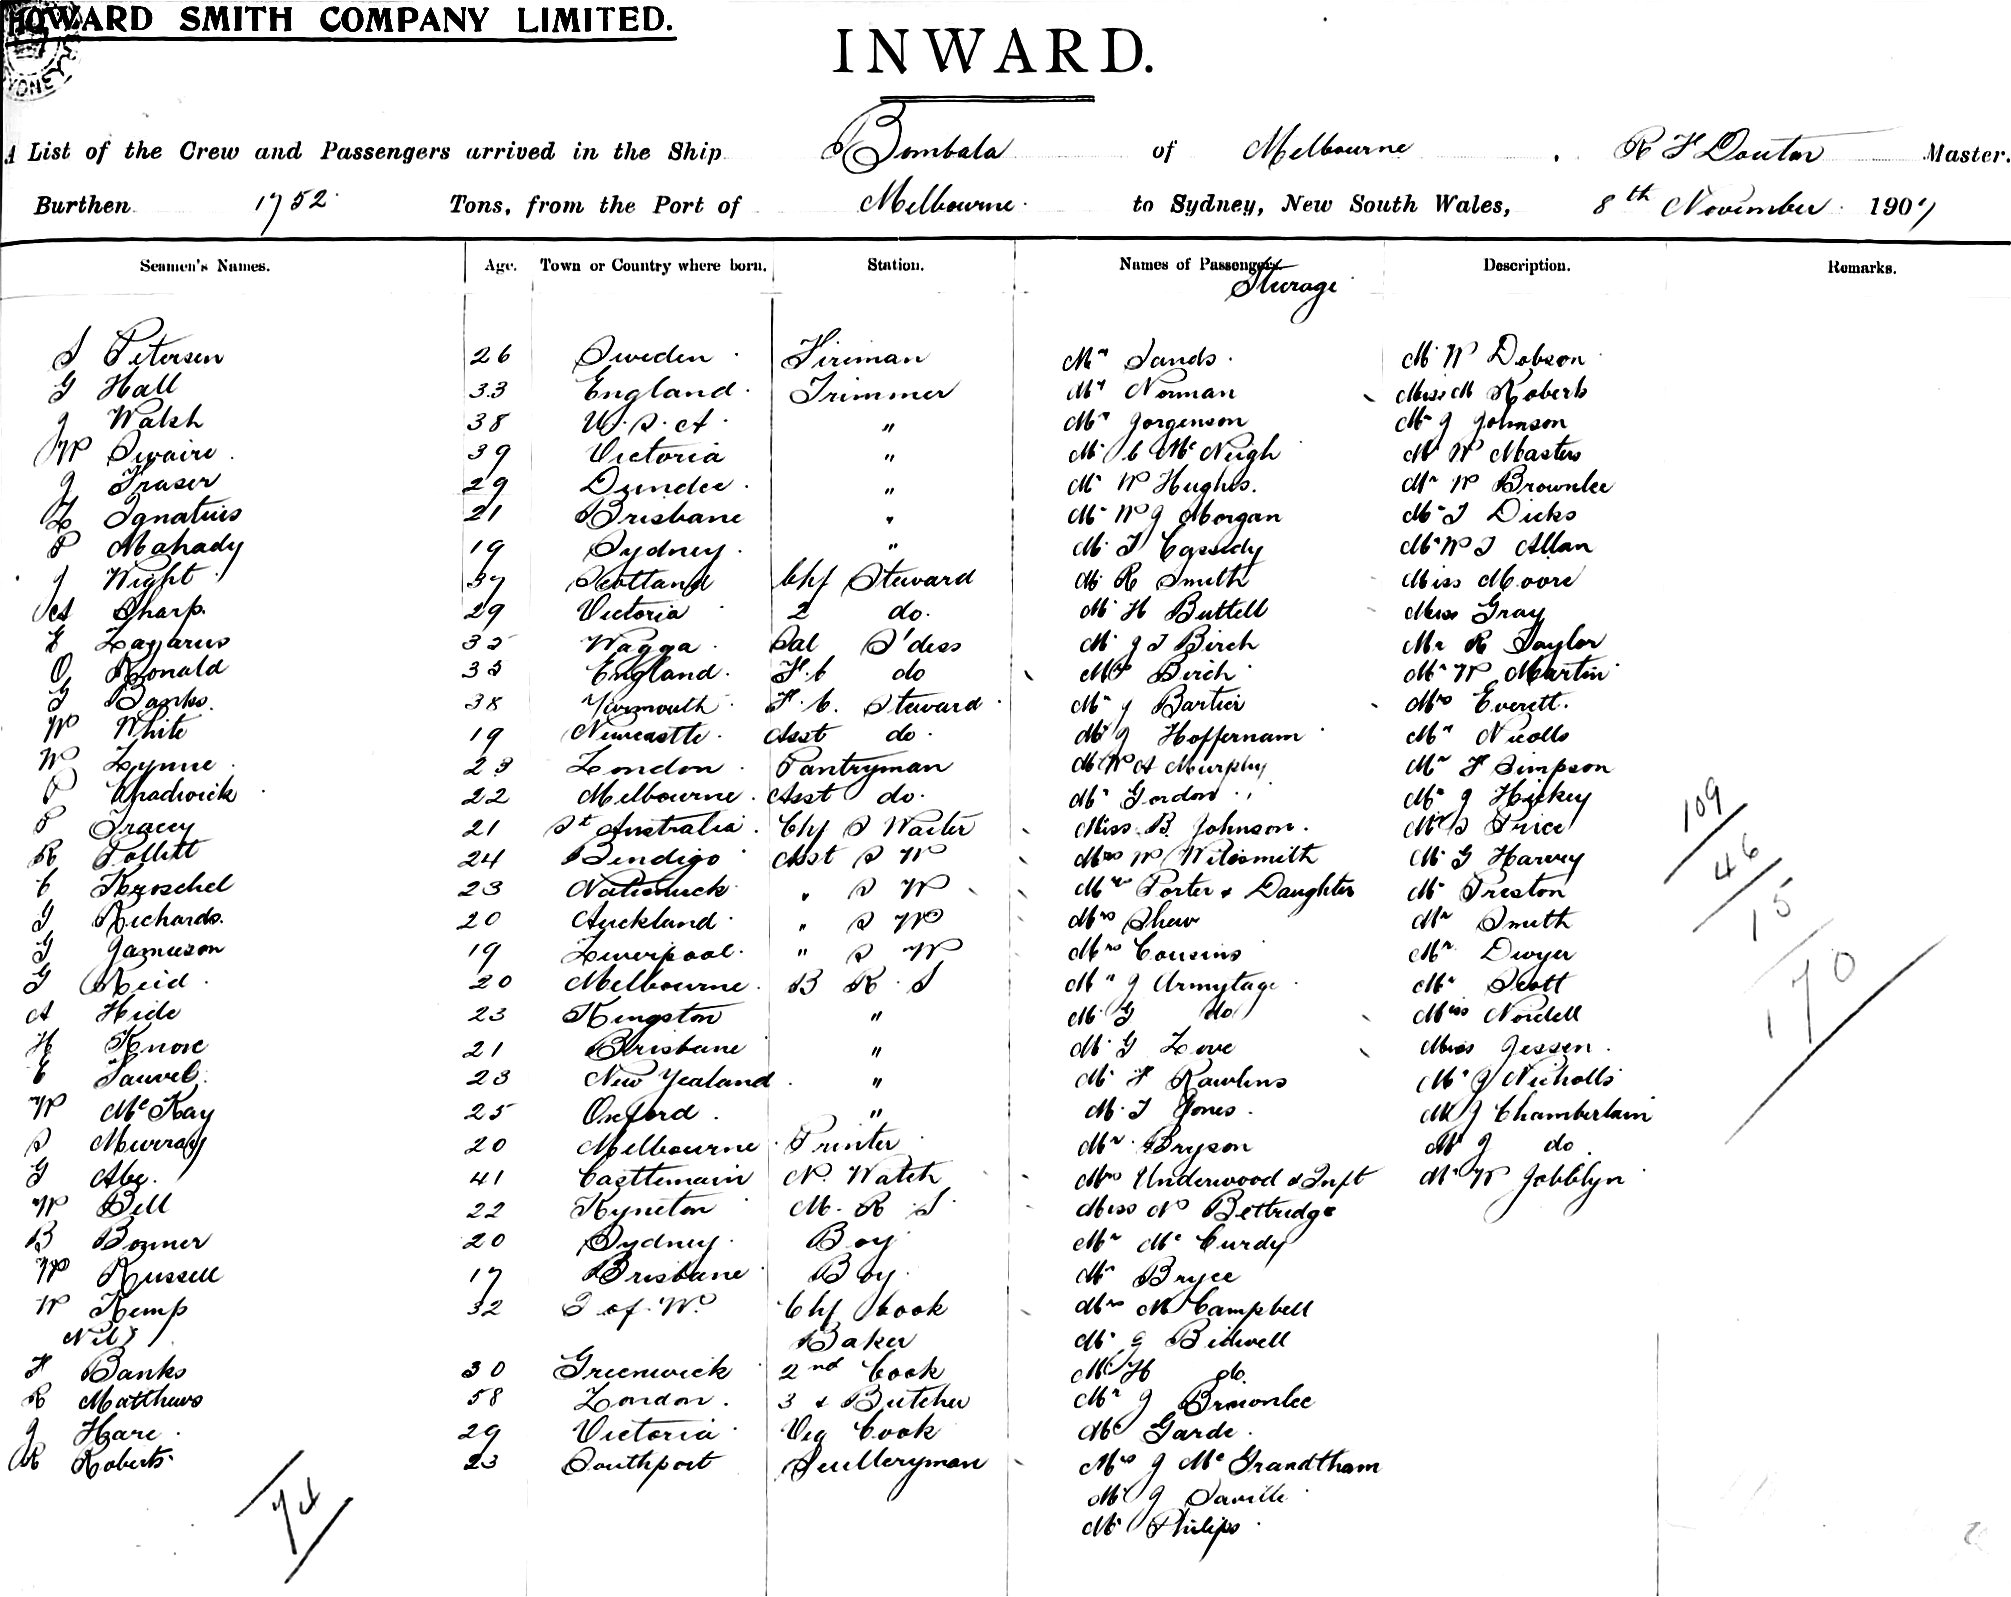 HOWARD SMITH COMPANY LIMITED.
INWARD.
A List of the Crew and Passengers arrived in the Ship Bombala of Melbourne, R F Doutor Master.
Burthen 1752 Tons, from the Port of Melbourne to Sydney, New South Wales, 8th November 1907
Seamen's Names. Age. Town or Country where born. Station. Names of Passengers. Description. Remarks.
Steerage
S Petersen 26 Sweden Fireman Mr Sands Mr W Dobson
G Hall 33 England Trimmer Mr Norman Miss M Roberts
J Walsh 38 U.S.A. " Mr Jorgenson Mr J Johnson
W Swaire 39 Victoria " Mr C McNeigh Mr W Masters
J Fraser 29 Dundee " Mr W Hughes. Mr W Brownlee
L Ignatius 21 Brisbane " Mr W J Morgan Mr T Dicks
P Mahady 19 Sydney " Mr T Cassidy Mr W T Allan
J Wight 37 Scotland Chf Steward Mr R Smith Miss Moore
A Sharp. 29 Victoria 2 do. Mr H Buttell Miss Gray
E Lazarus 35 Wagga Sal S'dess Mr J T Birch Mr R Taylor
O Ronald 35 England. F.C do Mrs Birch Mr W Martin
G Banks. 38 Yarmouth F.C. Steward Mr J Bartier Mrs Everett.
W White 19 Newcastle. Asst do. Mr J Hoffernam Mr Nicolls
W Lynne 23 London Pantryman Mr W A Murphy Mr F Simpson
P Chadwick 22 Melbourne. Asst do. Mr Gordon Mr J Hickey
P Tracey 21 Sth Australia. Chf S Waiter Miss B. Johnson. Mr S Price
R Follitt 24 Bendigo Asst S W Mrs W Wilesmith Mr G Harvey
C Heroschel 23 Natimuck " S W Mrs Porter & Daughter Mr Preston
G Richards. 20 Auckland " S W Mrs Shaw Mr Smith
G Jamieson 19 Liverpool. " S W Mrs Cousins Mr Dwyer
G Reid 20 Melbourne. B R S Mr J Armytage Mr Scott
A Hide 23 Kingston " Mr G do Miss Nordell
H Knox 21 Brisbane " Mr G Love Miss Jessen.
E Sauvel. 23 New Zealand " Mr F Rawlins Mr J Nicholls
W McKay 25 Oxford. " Mr T Jones. Mr J Chamberlain
S Murray 20 Melbourne Printer Mr Bryson Mr J do
G Abe. 41 Castlemain N. Watch Mrs Underwood & Inft Mr W Jobblyn
W Bell 22 Kyneton M. R S Miss N Bettridge
B Bonner 20 Sydney. Boy Mr McCurdy
W Russell 17 Brisbane Boy. Mr Bryce
W Kemp 32 I of W. Chf Cook Mrs M Campbell
Nil Baker Mr G Bidwell
F Banks 30 Greenwick 2nd Cook Mr H do.
R Matthews 58 London. 3 & Butcher Mr J Brownlee
J Hare 29 Victoria Veg Cook Mr Garde.
R Roberts 23 Southport Sculleryman Mrs J McGrandtham
Mr J Saville
Mr Philips
74
109
46
15
170